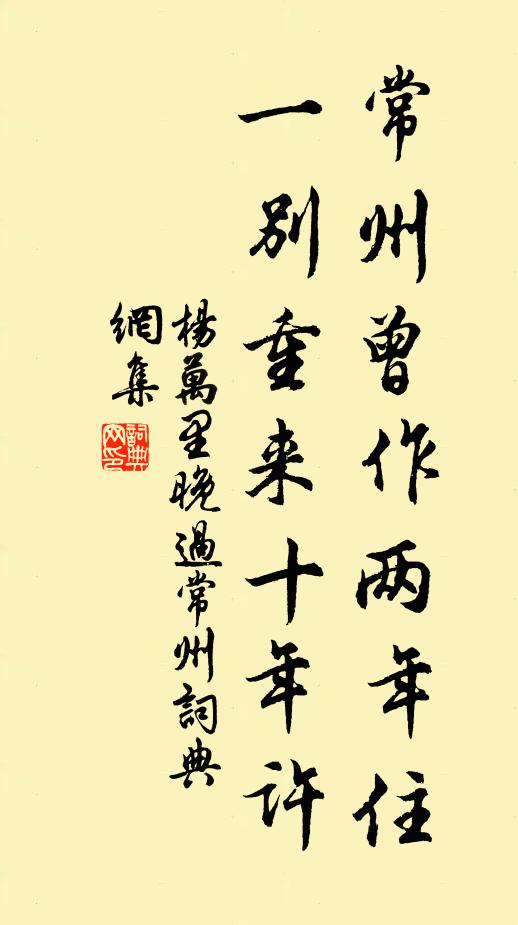 常州曾作两年住
一别重来十年许
楊萬里晚過常州詞典
網集
詞典
网印